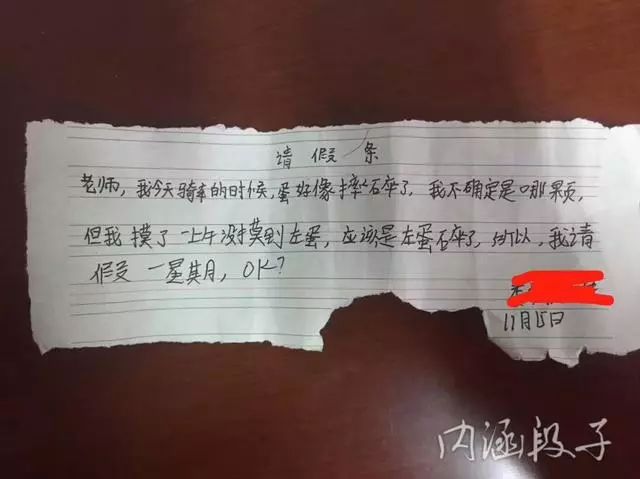 请假条
老师，我今天骑车的时候，蛋好像摔碎了，我不确定是哪颗，
但我摸了一上午没摸到左蛋，应该是左蛋碎了，所以，我请
假一星期，OK？
11月15日
内涵段子